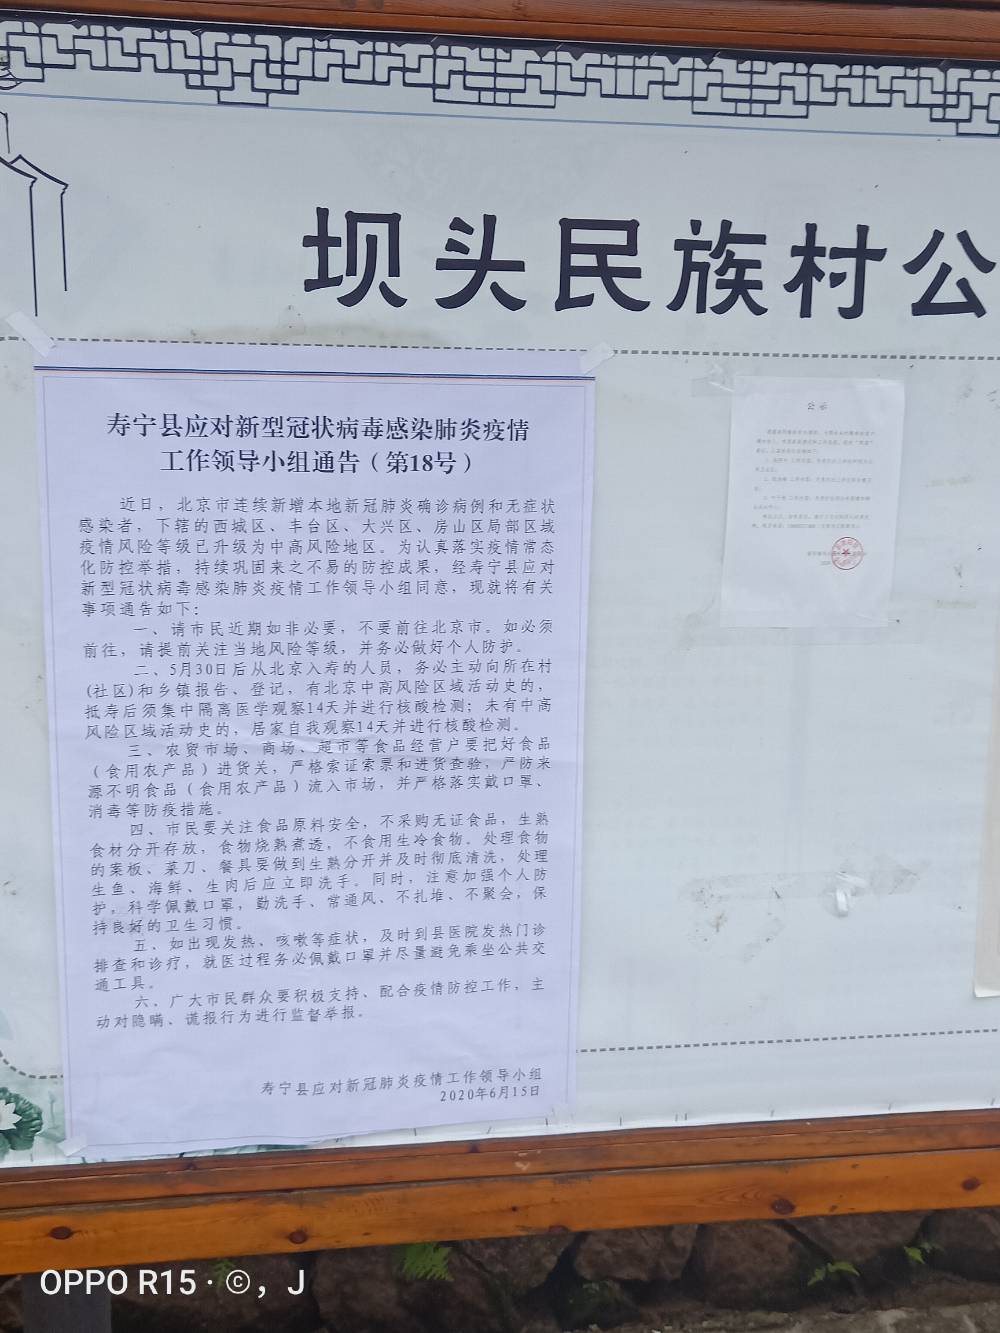 坝头民族村公
寿宁县应对新型冠状病毒感染肺炎疫情
工作领导小组通告（第18号）
近日，北京市连续新增本地新冠肺炎确诊病例和无症状
感染者，下辖的西城区、丰台区、大兴区、房山区局部区域
疫情风险等级已升级为中高风险地区。为认真落实疫情常态
化防控举措，持续巩固来之不易的防控成果，经寿宁县应对
新型冠状病毒感染肺炎疫情工作领导小组同意，现就将有关
事项通告如下：
一、请市民近期如非必要，不要前往北京市。如必须
前往，请提前关注当地风险等级，并务必做好个人防护。
二、5月30日后从北京入寿的人员，务必主动向所在村
(社区)和乡镇报告、登记，有北京中高风险区域活动史的，
抵寿后须集中隔离医学观察14天并进行核酸检测；未有中高
风险区域活动史的，居家自我观察14天并进行核酸检测。
三、农贸市场、商场、超市等食品经营户要把好食品
（食用农产品）进货关，严格索证索票和进货查验，严防来
源不明食品（食用农产品）流入市场，并严格落实戴口罩、
消毒等防疫措施。
四、市民要关注食品原料安全，不采购无证食品，生熟
食材分开存放，食物烧熟煮透，不食用生冷食物。处理食物
的案板、菜刀、餐具要做到生熟分开并及时彻底清洗，处理
生鱼、海鲜、生肉后应立即洗手。同时，注意加强个人防
护，科学佩戴口罩，勤洗手、常通风、不扎堆、不聚会，保
持良好的卫生习惯。
五、如出现发热、咳嗽等症状，及时到县医院发热门诊
排查和诊疗，就医过程务必佩戴口罩并尽量避免乘坐公共交
通工具。
六、广大市民群众要积极支持、配合疫情防控工作，主
动对隐瞒、谎报行为进行监督举报。
寿宁县应对新冠肺炎疫情工作领导小组
2020年6月15日
公示
OPPO R15 · ©，J